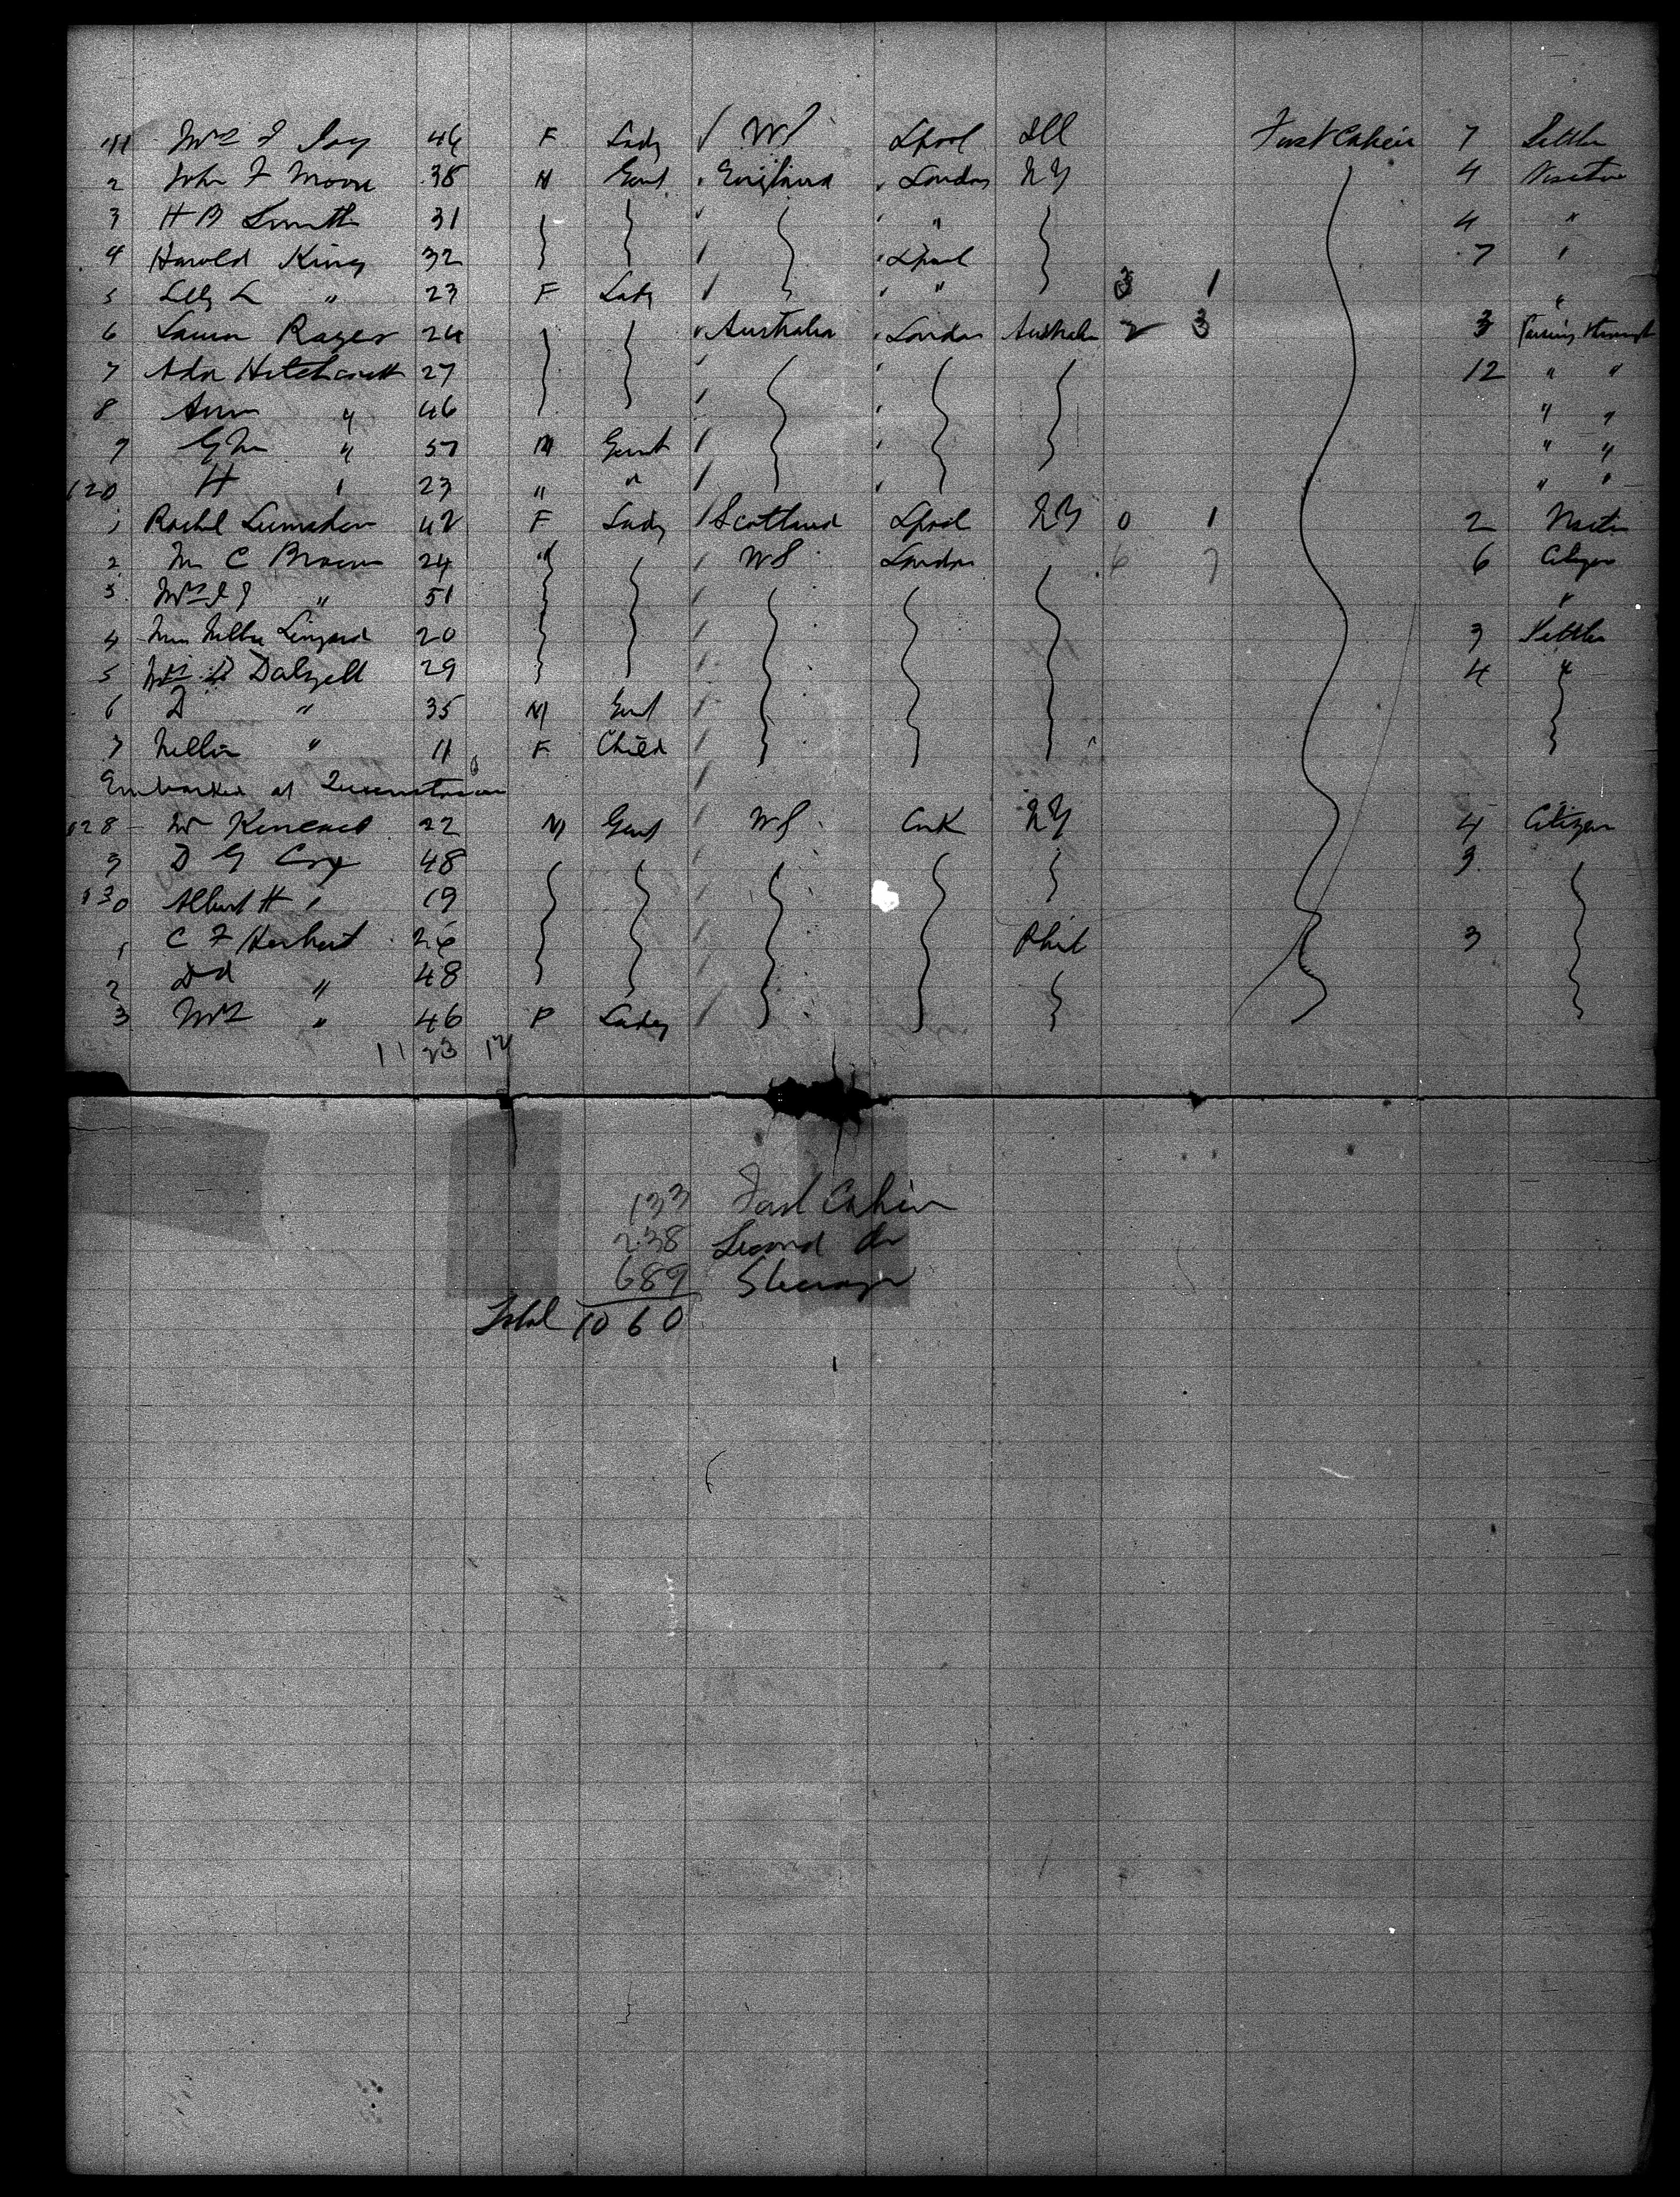 Mrs J Joy 46 F Lady WS Lpool Ill First Cabin 7 Settler
2 John F Moore 38 M Gent England London NY 4 Visitor
3 H B Smith 31 " 4 "
4 Harold King 32 Lpool 7 "
5 Lilly L " 23 F Lady " 3 1 "
6 Laura Rayer 24 Australia London Australia 2 3 3 Passing through
7 Ada Hitchcock 27 12 " "
8 Ann " 46 " "
9 " 57 M Gent " "
120 H " 23 " " " "
1 Rachel Lumsden 42 F Lady Scotland Lpool NY 0 1 2 Visitor
2 M C Brown 24 " WS London 6 7 6 Citizen
3 Mrs " 51 "
4 Miss Nellie Lingard 20 3 Settler
5 Mrs D Dalzell 29 4 "
6 D " 35 M Gent
7 Nellie " 11 F Child
Embarked at Queenstown
128 W Kincaid 22 M Gent WS Cork NY 4 Citizen
9 D G Coy 48 3
130 Albert H " 19
1 C F Herbert 26 Phil 3
2 Dd " 48
3 Mrs " 46 F Lady
11 23 12
133 First Cabin
238 Second do
689 Steerage
Total 1060